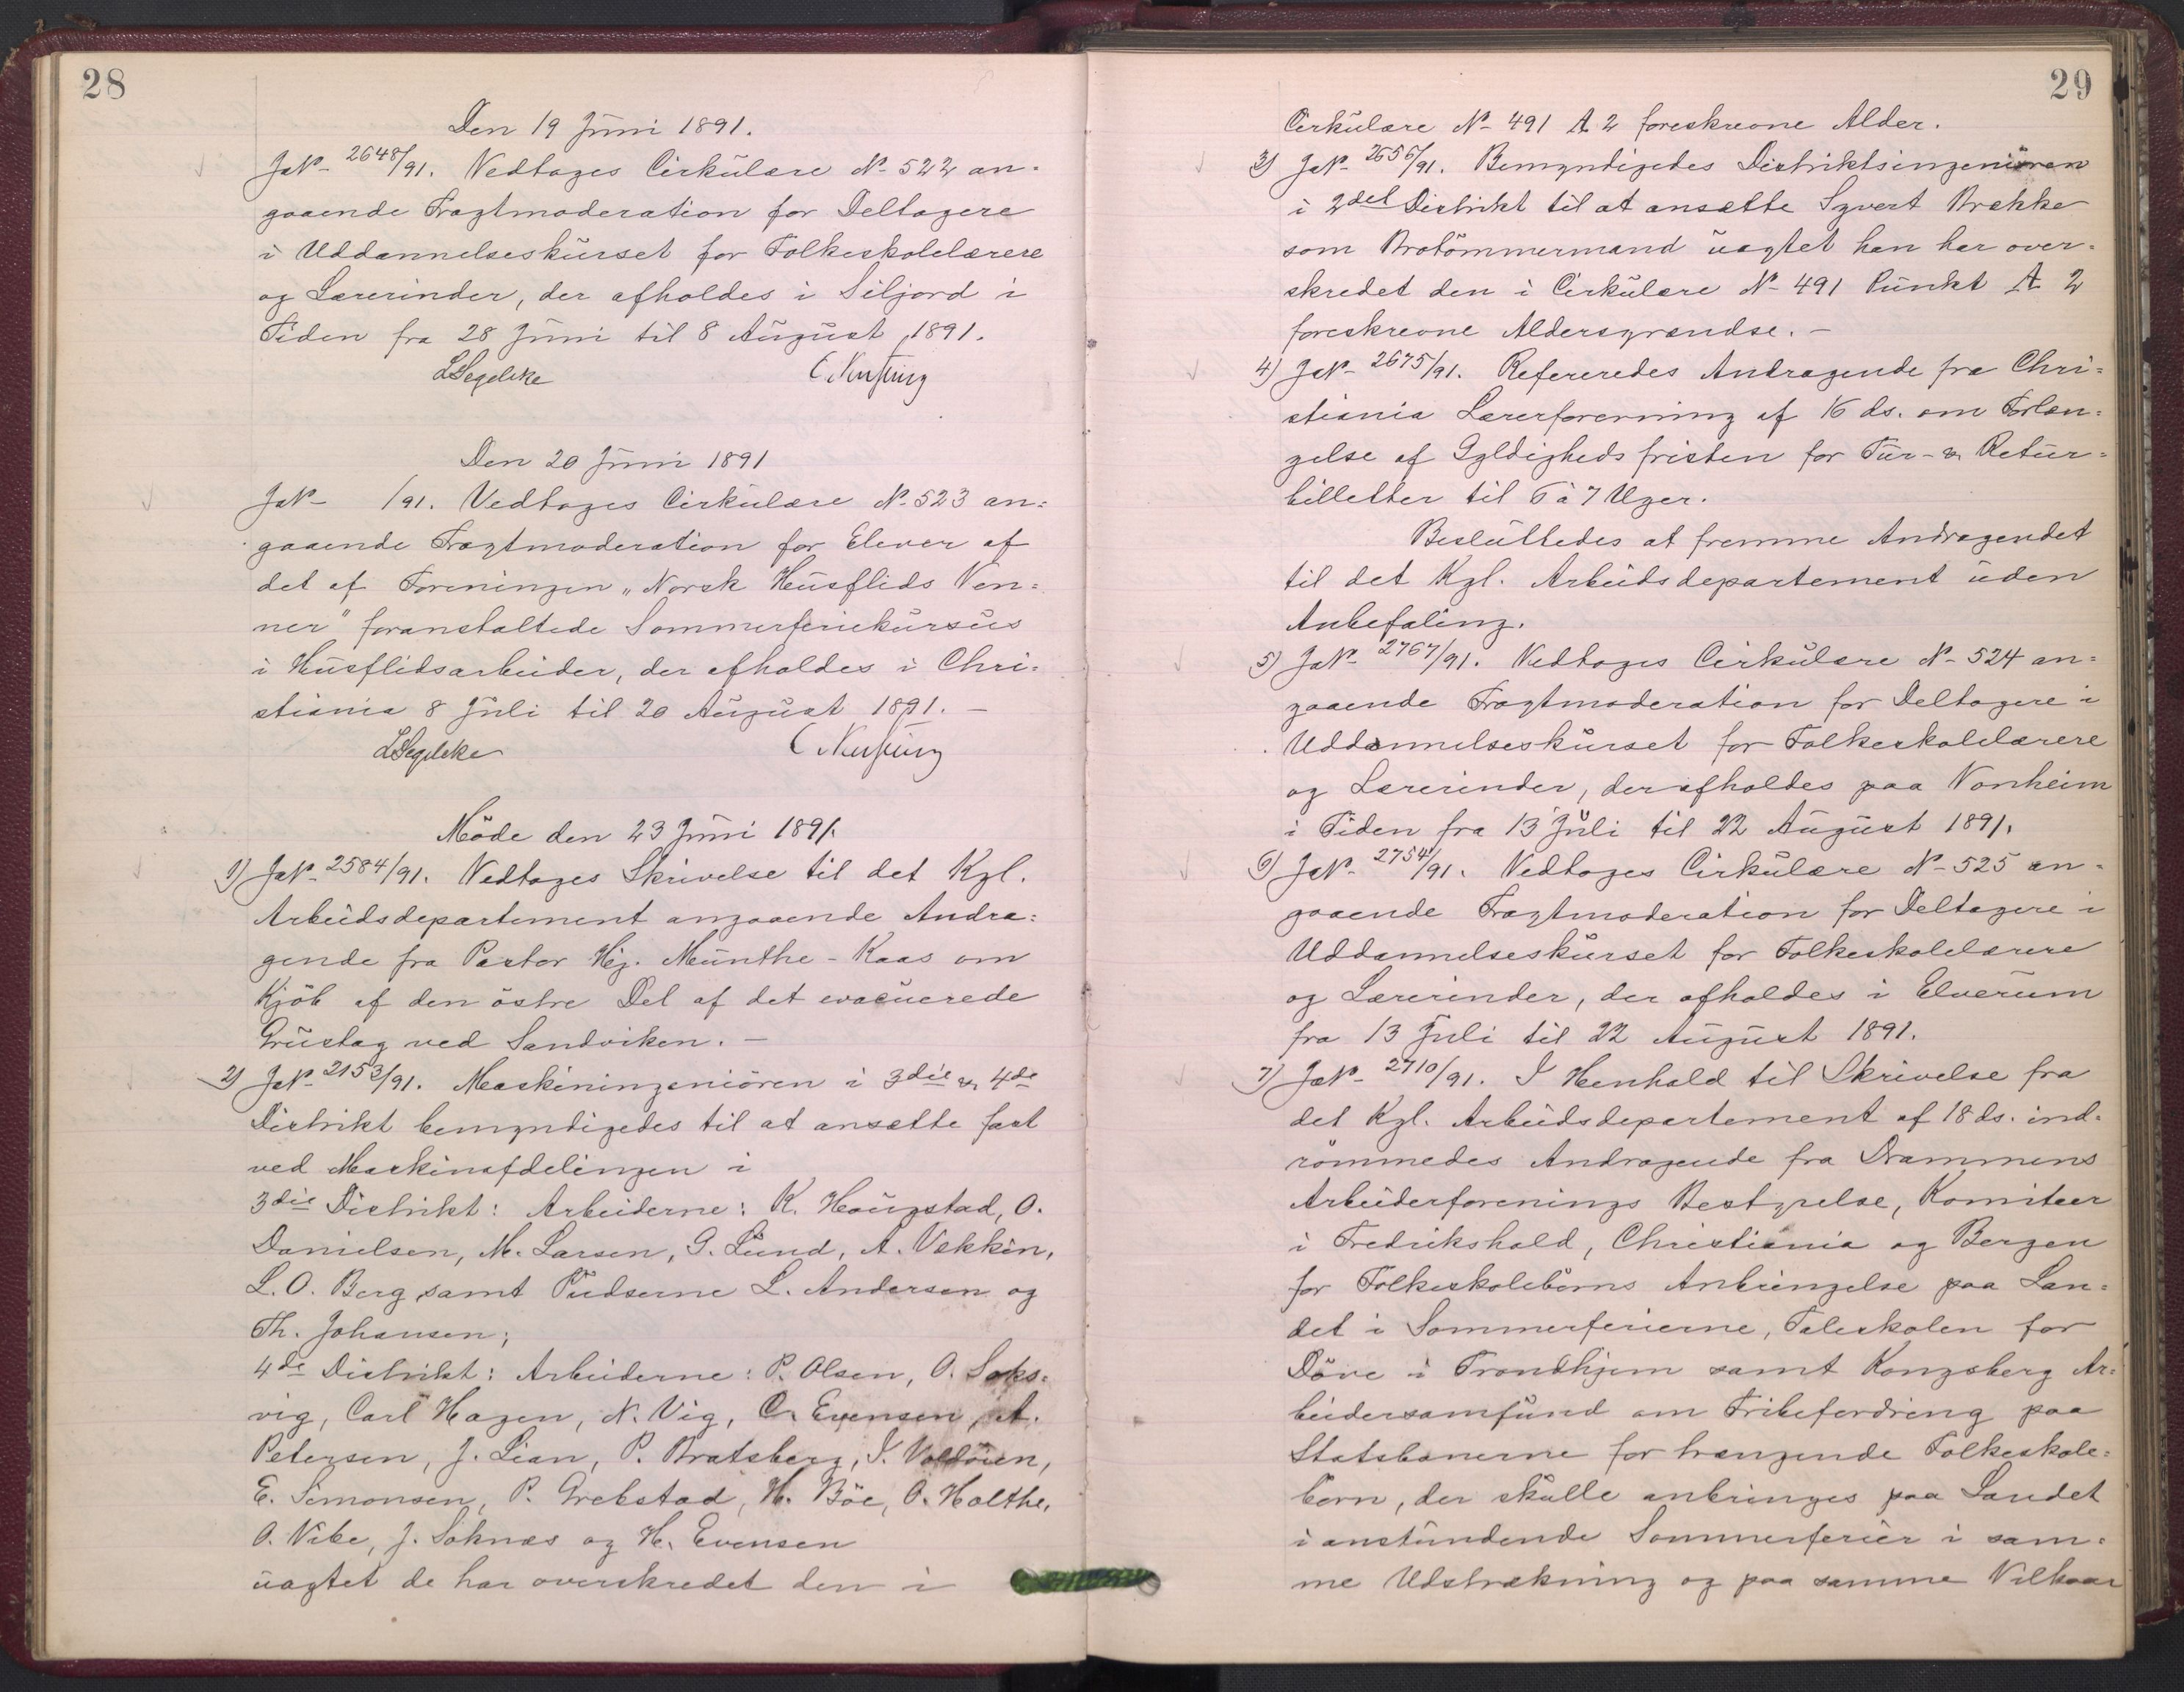 28
Den 19 Juni 1891.
JNo 2648/91. Vedtoges Cirkulære No 522 an-
gaaende Fragtmoderation for Deltagere
i Uddannelseskurset for Folkeskolelærere
og Lærerinder, der afholdes i Siljord i
Tiden fra 28 Juni til 8 August 1891.
LSegelcke
Den 20 Juni 1891
JNo /91. Vedtoges Cirkulære No 523 an=
gaaende Fragtmoderation for Elever af
det af Foreningen "Norsk Husflids Ven=
ner" foranstaltede Sommerferiekursus
i Husflidsarbeider, der afholdes i Chri=
stiania 8 Juli til 20 August 1891. -
LSegelcke
Möde den 23 Juni 1891.
1) JNo 2584/91. Vedtoges Skrivelse til det Kgl.
Arbeidsdepartement angaaende Andra=
gende fra Pastor Hj. Munthe-Kaas om
Kjöb af den östre Del af det evacuerede
Grustag ved Sandviken. -
2) JNo 2153/91. Maskiningeniören i 3die & 4de
Distrikt bemyndigedes til at ansætte fast
ved Maskinafdelingen i
3die Distrikt: Arbeiderne: K. Haugstad, O.
Danielsen, M. Larsen, G. Lund, A. Vekkin,
L. O. Berg samt Pudserne L. Andersen og
Th. Johansen;
4de Distrikt: Arbeiderne: P. Olsen, O. Saks=
vig, Carl Hagen, N. Vig, O. Evensen, A.
Petersen, J. Lian, P. Bratsberg, I. Voldöien,
E. Simonsen, P. Grebstad, H. Böe, O. Holthe,
O. Vibe, J. Soknæs og H. Evensen
uagtet de har overskredet den i
29
Cirkulære No 491 A 2 foreskrevne Alder.
3) JNo 2656/91. Bemyndigedes Distriktsingeniören
i 2det Distrikt til at ansætte Syvert Brække
som Brotömmermand uagtet han har over=
skredet den i Cirkulære No 491 Punkt A 2
foreskrevne Aldersgrændse. -
4) JNo 2675/91. Refereredes Andragende fra Chri=
stiania Lærerforening af 16 ds. om Forlæn=
gelse af Gyldighedsfristen for Tur- & Retur=
billetter til 6 à 7 Uger.
Besluttedes at fremme Andragendet
til det Kgl. Arbeidsdepartement uden
Anbefaling.
5) JNo 2767/91. Vedtoges Cirkulære No 524 an=
gaaende Fragtmoderation for Deltagere i
Uddannelseskurset for Folkeskolelærere
og Lærerinder, der afholdes paa Vonheim
i Tiden fra 13 Juli til 22 August 1891.
6) JNo 2754/91. Vedtoges Cirkulære No 525 an=
gaaende Fragtmoderation for Deltagere i
Uddannelseskurset for Folkeskolelærere
og Lærerinder, der afholdes i Elverum
fra 13 Juli til 22 August 1891.
7) JNo 2710/91. I Henhold til Skrivelse fra
det Kgl. Arbeidsdepartement af 18 ds. ind=
römmedes Andragende fra Drammens
Arbeiderforenings Bestyrelse, Komiteer
i Fredrikshald, Christiania og Bergen
for Folkeskolebörns Anbringelse paa Lan=
det i Sommerferierne, Taleskolen for
Döve i Trondhjem samt Kongsberg Ar=
beidersamfund om Fribefordring paa
Statsbanerne for trængende Folkeskole=
börn, der skulle anbringes paa Landet
i anstundende Sommerferier i sam=
me Udstrækning og paa samme Vilkaar